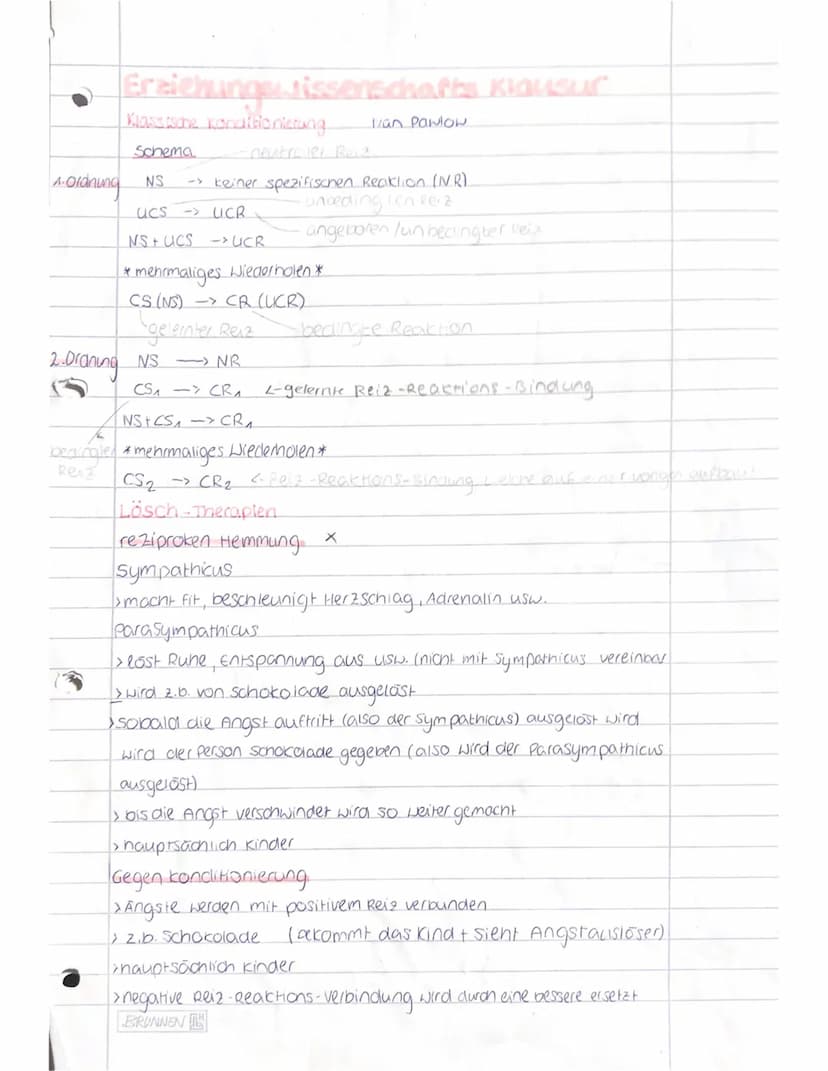 Erziehungswissenschafts Klausur
Klassische Konditionierung Ivan Pawlow
Schema neutraler Reiz
1.Ordnung NS -> keiner spezifischen Reaktion (NR)
unbedingten Reiz
UCS -> UCR
angeboren/unbedingter Reiz
NS + UCS -> UCR
*mehrmaliges Wiederholen*
CS (NS) -> CR (UCR)
gelernter Reiz bedingte Reaktion
2.Ordnung NS -> NR
CS1 -> CR1 <-gelernte Reiz-Reaktions-Bindung
NS+CS1 -> CR1
bedingter Reiz
*mehrmaliges Wiederholen*
CS2 -> CR2 <-Reiz-Reaktions-Bindung welche auf einer vorigen aufbaut
Lösch-Therapien
reziproken Hemmung x
Sympathicus
>macht fit, beschleunigt Herzschlag, Adrenalin usw.
Parasympathicus
>löst Ruhe, Entspannung aus usw. (nicht mit Sympathicus vereinbar
>wird z.b. von Schokolade ausgelöst
>sobald die Angst auftritt (also der Sympathicus) ausgelöst wird
wird der Person Schokolade gegeben (also wird der Parasympathicus
ausgelöst)
>bis die Angst verschwindet wird so weiter gemacht
>hauptsächlich Kinder
Gegenkonditionierung
>Ängste werden mit positivem Reiz verbunden
> z.b. Schokolade (bekommt das Kind + sieht Angstauslöser)
>hauptsächlich Kinder
>negative Reiz-Reaktions-Verbindung wird durch eine bessere ersetzt
BRUNNEN